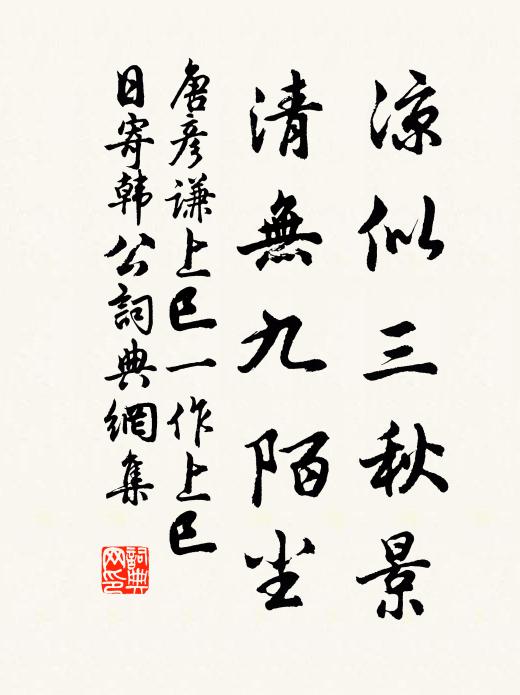 涼似三秋景
清無九陌尘
唐彦谦上巳一作上巳
日寄韩公詞典網集
詞典网印